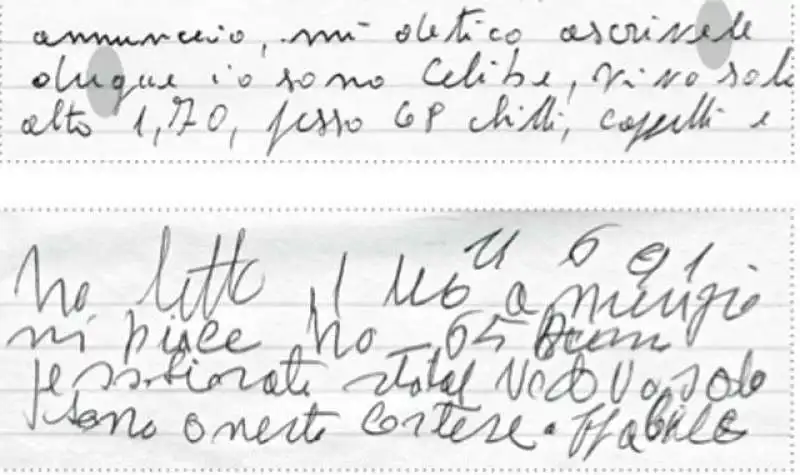 annunceio, mi detico ascrivele
duque io sono Celibe, vivo solo
alto 1,70, pesso 68 chilli, cappelli e
11 6 91
ho letto il tuo annungio
mi piace ho 65 anni
pessionato statal vedovo, solo
sono onesto cortese affabile